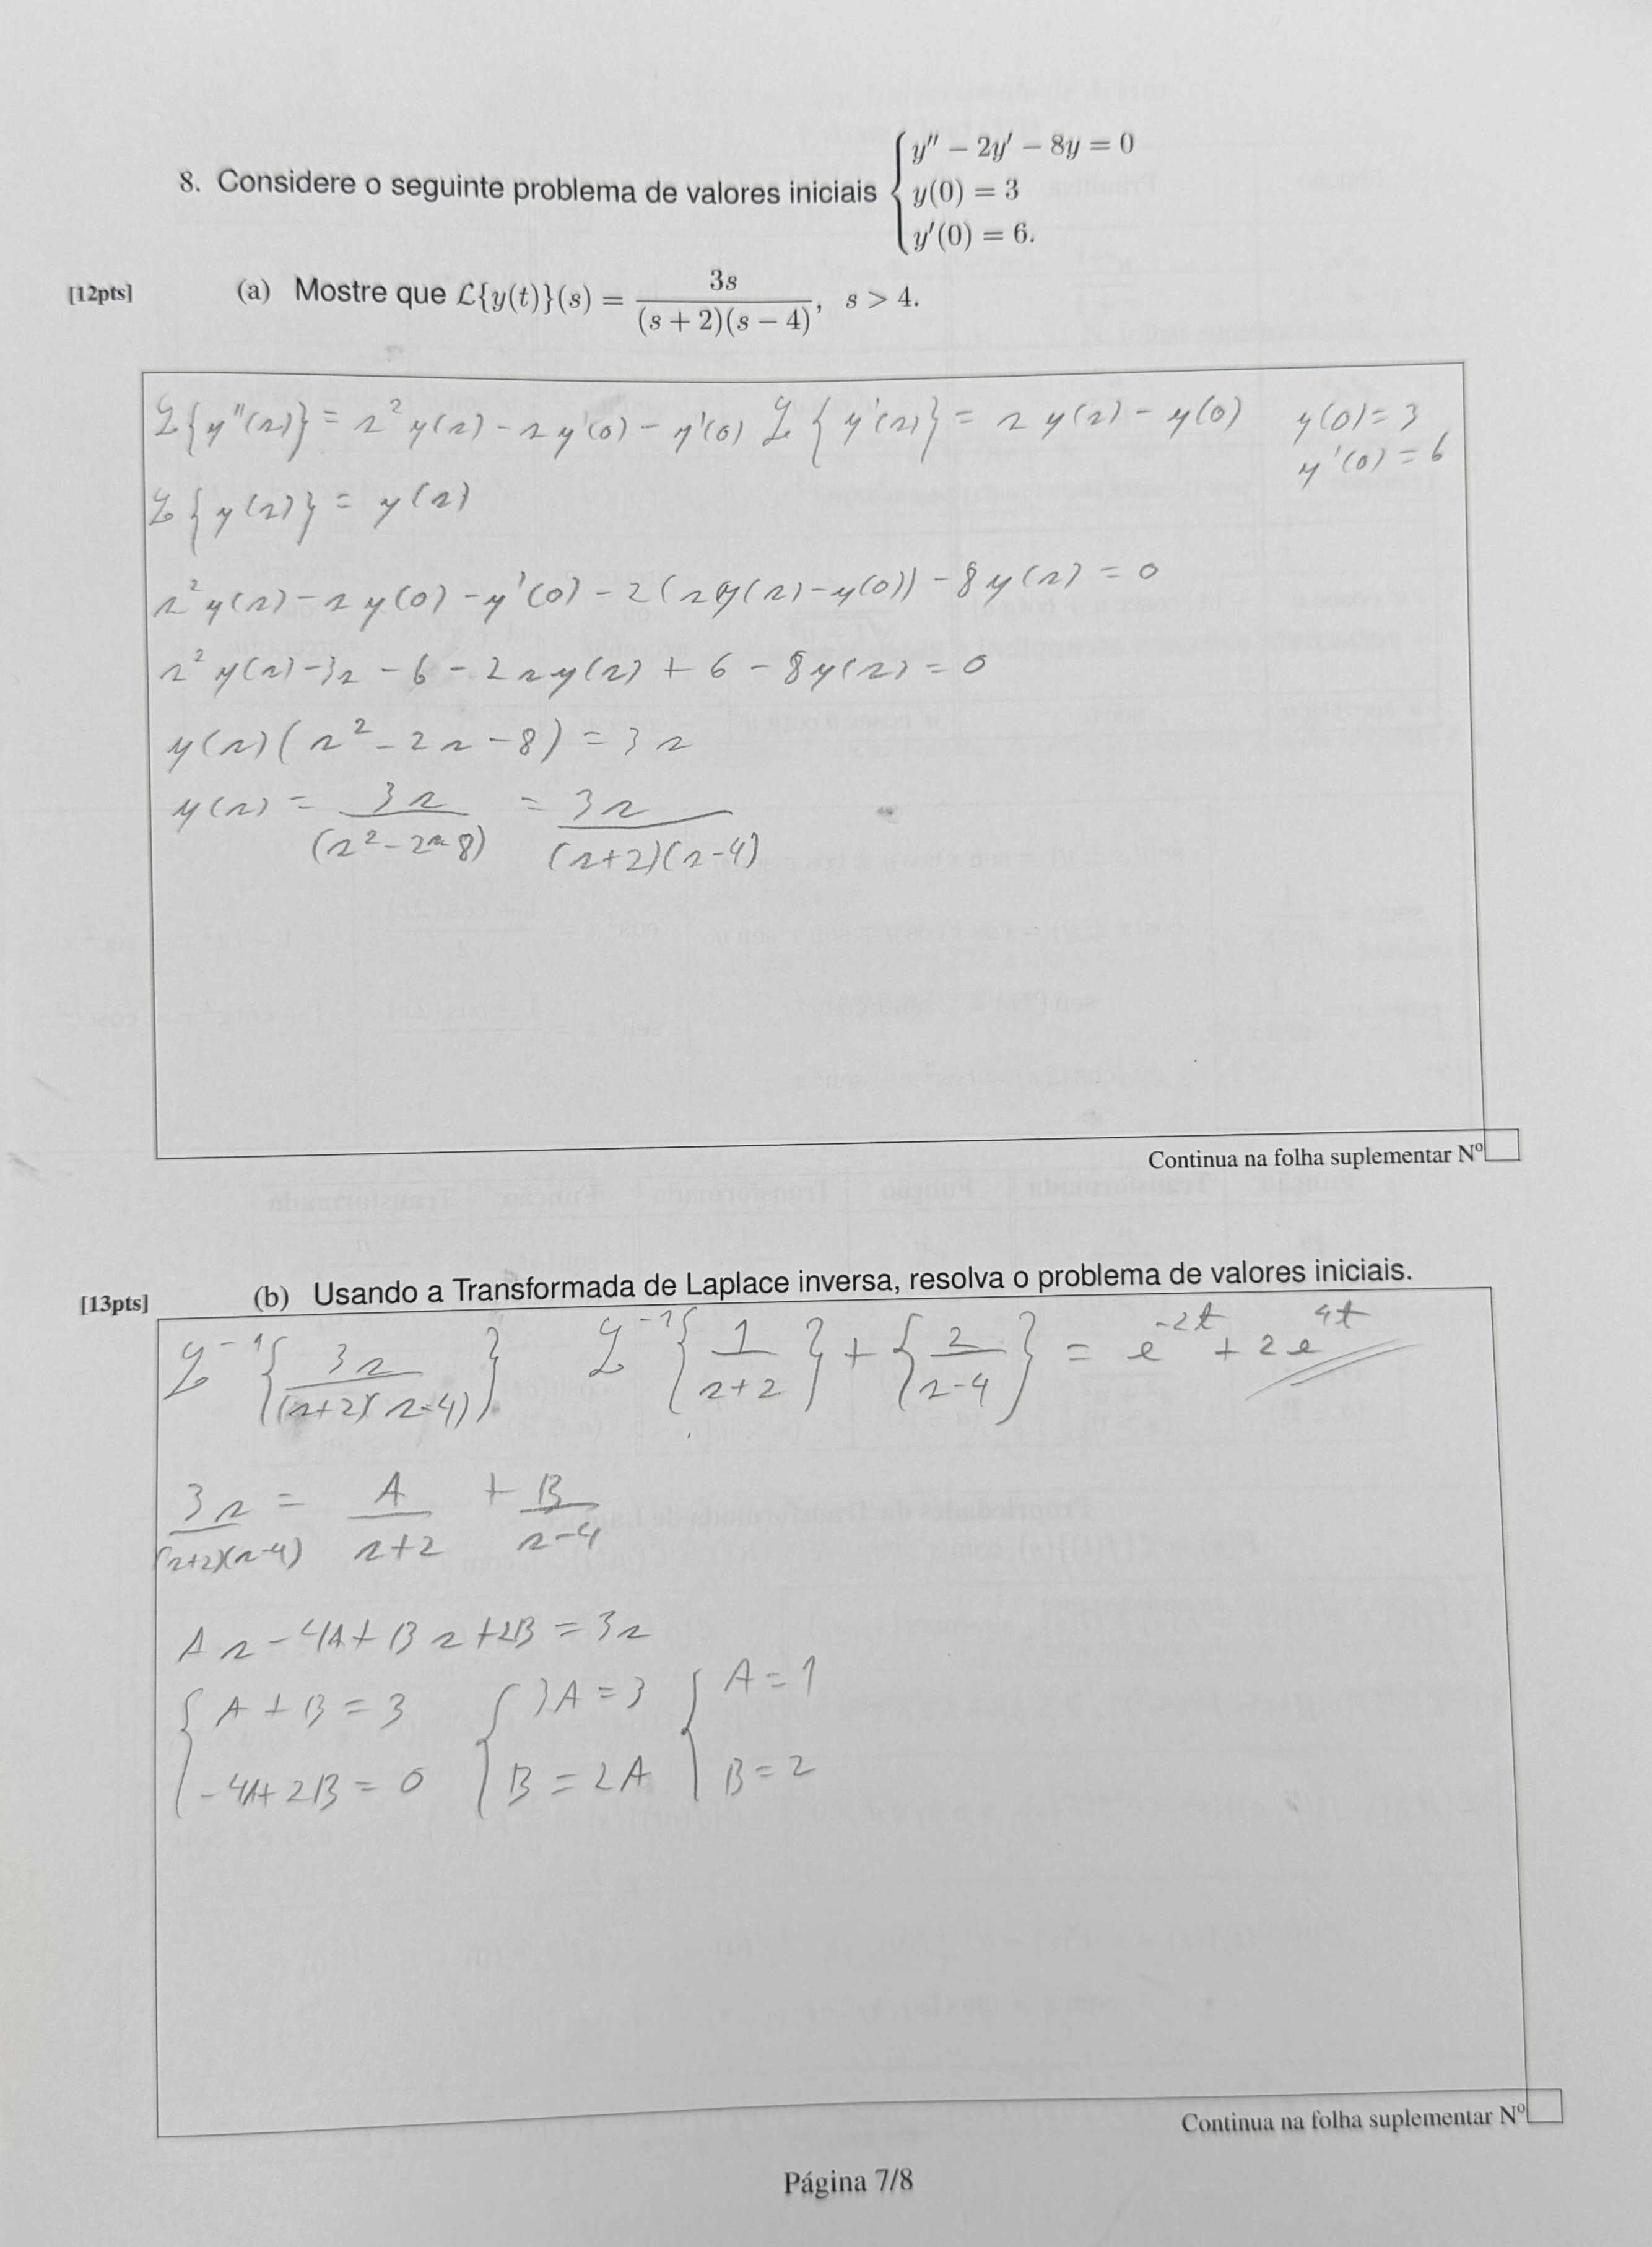 8. Considere o seguinte problema de valores iniciais { y″ − 2y′ − 8y = 0
y(0) = 3
y′(0) = 6.
[12pts] (a) Mostre que ℒ{y(t)}(s) = 3s / ((s + 2)(s − 4)), s > 4.
ℒ{y″(s)} = s² y(s) − s y′(0) − y′(0) ℒ{y′(s)} = s y(s) − y(0) y(0) = 3
y′(0) = 6
ℒ{y(s)} = y(s)
s² y(s) − s y(0) − y′(0) − 2(s y(s) − y(0)) − 8y(s) = 0
s² y(s) − 3s − 6 − 2 s y(s) + 6 − 8y(s) = 0
y(s)(s² − 2s − 8) = 3s
y(s) = 3s / (s² − 2s − 8) = 3s / ((s+2)(s−4))
Continua na folha suplementar Nº
[13pts] (b) Usando a Transformada de Laplace inversa, resolva o problema de valores iniciais.
ℒ⁻¹{3s / ((s+2)(s−4))} ℒ⁻¹{1 / (s+2)} + {2 / (s−4)} = e^(−2t) + 2e^(4t)
3s / ((s+2)(s−4)) = A / (s+2) + B / (s−4)
As − 4A + Bs + 2B = 3s
{ A + B = 3 { 3A = 3 { A = 1
−4A + 2B = 0 B = 2A B = 2
Continua na folha suplementar Nº
Página 7/8